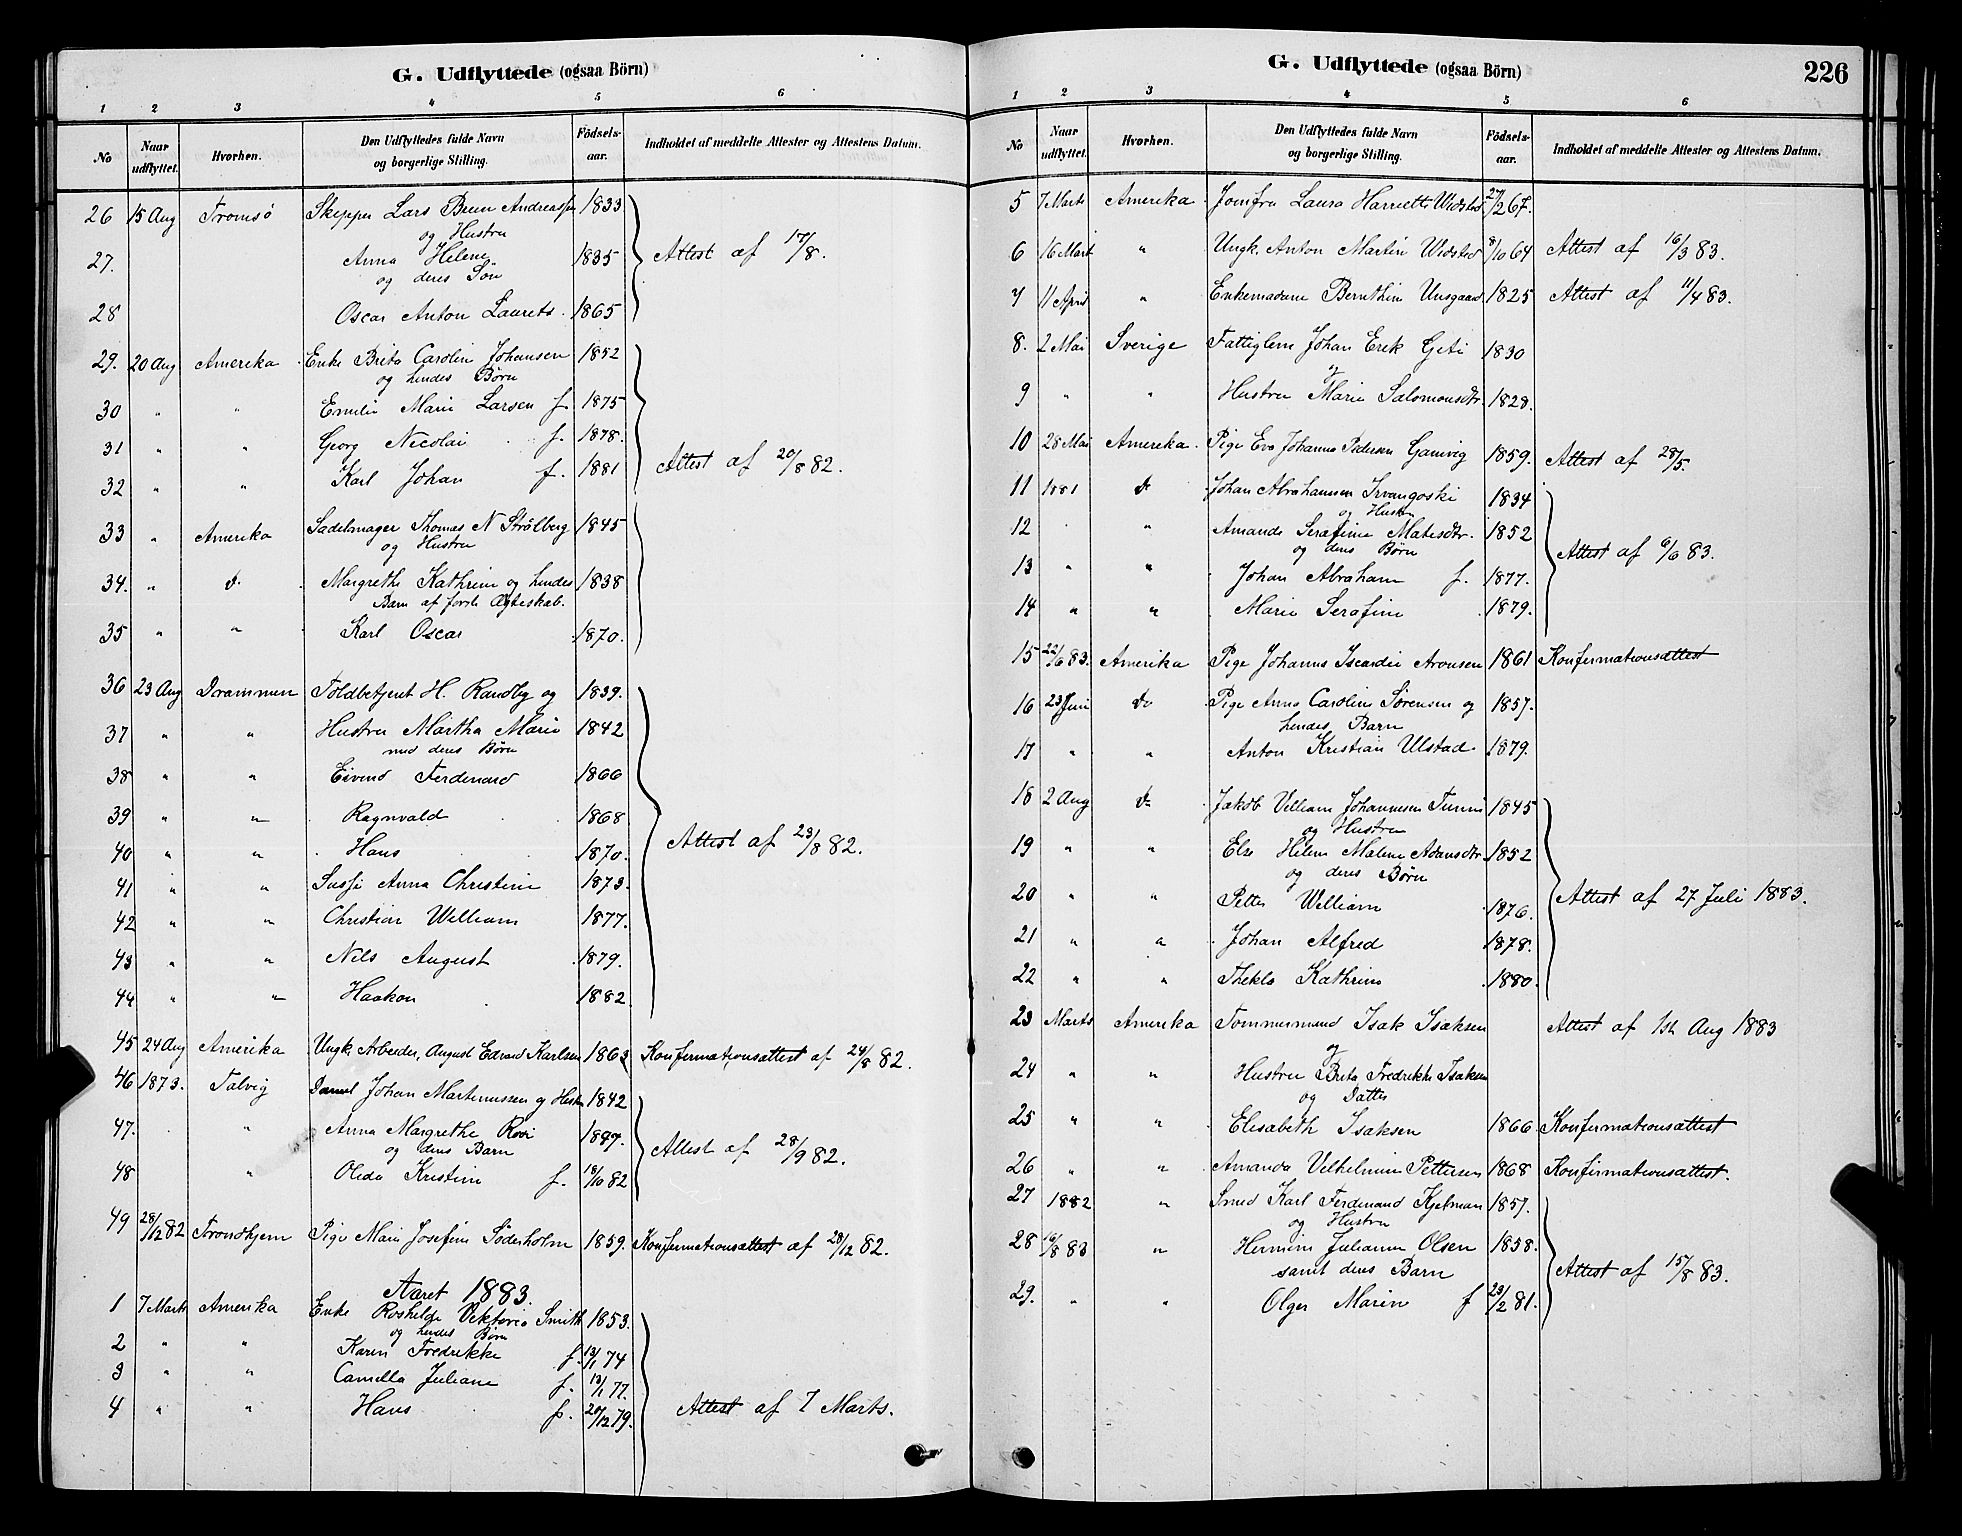 G. Udflyttede (ogsaa Börn)
1 2 3 4 5 6
No Naar udflyttet. Hvorhen. Den Udflyttedes fulde Navn og borgerlige Stilling. Födsels-aar. Indholdet af meddelte Attester og Attestens Datum.
26 15 Aug Tromsö Skipper Lars Brun Andreassen 1833
og Hustru
27. Anna Helene 1835 Attest af 17/8.
og deres Sön
28 Oscar Anton Laurets. 1865
29. 20 Aug Amerika Enke Brita Carolin Johansen 1852
og hendes Børn
30 " " Emilie Marie Larsen f. 1875
31 " " Georg Nicolai f. 1878.
32 " " Karl Johan f. 1881 Attest af 20/8 82.
33 " Amerika Sadelmager Thomas N Strølberg 1845
og Hustru
34. " do Margrethe Kathrine og hendes 1838
Barn af første Ægteskab.
35 " " Karl Oscar 1870.
36 23 Aug Drammen Toldbetjent H. Randby og 1839.
37 " " Hustru Martha Marie 1842
med deres Børn
38 " " Eivind Ferdinand 1866
39 " " Ragnvald 1868
40 " " Hans 1870. Attest af 23/8 82.
41 " " Sussi Anna Christine 1873.
42 " " Christian William 1877.
43 " " Nils August 1879.
44 " " Haakon 1882
45 24 Aug Amerika Ungk. Arbeider, August Edvard Karlsen 1863 Konfirmationsattest af 24/8 82.
46 1873. Talvig Daniel Johan Martinussen og Hustru 1842
47. " Anna Margrethe Rosi 1847.
og deres Barn Attest af 28/9 82.
48 " Oleda Kristine f. 18/10 82
49 28/12 82 Trondhjem Pige Marie Josefine Söderholm 1859. Konfirmationsattest af 28/12 82.
Aaret 1883.
1 7 Marts Amerika Enke Roshilde Viktoria Smith 1853.
og hendes Børn
2 " " Karen Fredrikke f. 13/1 74
3 " " Camilla Juliane f. 13/1 77.
4 " " Hans f. 20/12 79. Attest af 7 Marts.
G. Udflyttede (ogsaa Börn) 226
1 2 3 4 5 6
No Naar udflyttet. Hvorhen. Den Udflyttedes fulde Navn og borgerlige Stilling. Födsels-aar. Indholdet af meddelte Attester og Attestens Datum.
5 7 Marts Amerika Jomfru Laura Harriette Widsted 27/2 67.
6 16 Mart " Ungk. Anton Martin Widsted 8/10 64 Attest af 16/3 83.
7 11 April " Enkemadame Bernthine Unsgaard 1825 Attest af 11/4 83.
8. 2 Mai Sverige Fattiglem Johan Erik Geti 1830
og
9 " " Hustru Marie Salomonsdtr. 1828.
10 28 Mai Amerika Pige Eva Johanna Pedersen Gamvig 1859. Attest af 28/5.
11 1881 do Johan Abrahamsen 1834
og Hustru
12 " Amanda Serafine Matisdtr. 1852
og deres Børn Attest af 6/6 83.
13 " " Johan Abraham f. 1877.
14 " " Marie Serafine 1879.
15 22/6 83. Amerika Pige Johanna Iscardie Aronsen 1861 Konfirmationsattest
16 23 Juni do Pige Anna Caroline Sørensen og 1857.
hendes Barn
17 " " Anton Kristian Ulstad 1879.
18 2 Aug do Jakob Villiam Johannesen Turuni 1845
og Hustru
19 " " Else Helene Malene Adamsdtr. 1852
og deres Børn
20 " " Petter William 1876. Attest af 27 Juli 1883.
21 " " Johan Alfred 1878.
22 " " Thekla Kathrine 1880.
23 Marts Amerika Tømmermand Isak Isaksen Attest af 1st Aug 1883
og
24 " " Hustru Brita Fredrikke Isaksen
og Datter
25 " " Elisabeth Isaksen 1866 Konfirmationsattest
26 " " Amanda Vilhelmine Pettersen 1868 Konfirmationsattest.
27 1882 " Smed Karl Ferdinand Kjelman 1857.
og Hustru
28 16/8 83 " Hermine Julianne Olsen 1858.
samt deres Barn Attest af 15/8 83.
29. " " Olger Marin f 23/2 81.